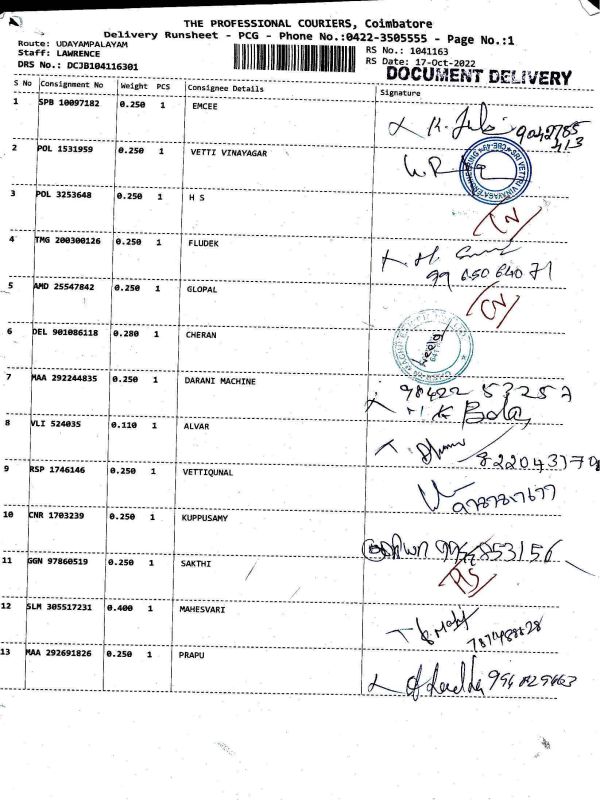 THE PROFESSIONAL COURIERS, Coimbatore
Delivery Runsheet - PCG - Phone No.:0422-3505555 - Page No.:1
Route: UDAYAMPALAYAM
Staff: LAWRENCE
DRS No.: DCJB104116301
RS No.: 1041163
RS Date: 17-Oct-2022
DOCUMENT DELIVERY
S No Consignment No Weight PCS Consignee Details Signature
1 SPB 10097182 0.250 1 EMCEE
2 POL 1531959 0.250 1 VETTI VINAYAGAR
3 POL 3253648 0.250 1 H S
4 TMG 200300126 0.250 1 FLUDEK
99 650 64071
5 AMD 25547842 0.250 1 GLOPAL
6 DEL 901086118 0.280 1 CHERAN
7 MAA 292244835 0.250 1 DARANI MACHINE
98422 53257
8 VLI 524035 0.110 1 ALVAR
9 RSP 1746146 0.250 1 VETTIQUNAL
10 CNR 1703239 0.250 1 KUPPUSAMY
11 GGN 97860519 0.250 1 SAKTHI
12 SLM 305517231 0.400 1 MAHESVARI
13 MAA 292691826 0.250 1 PRAPU